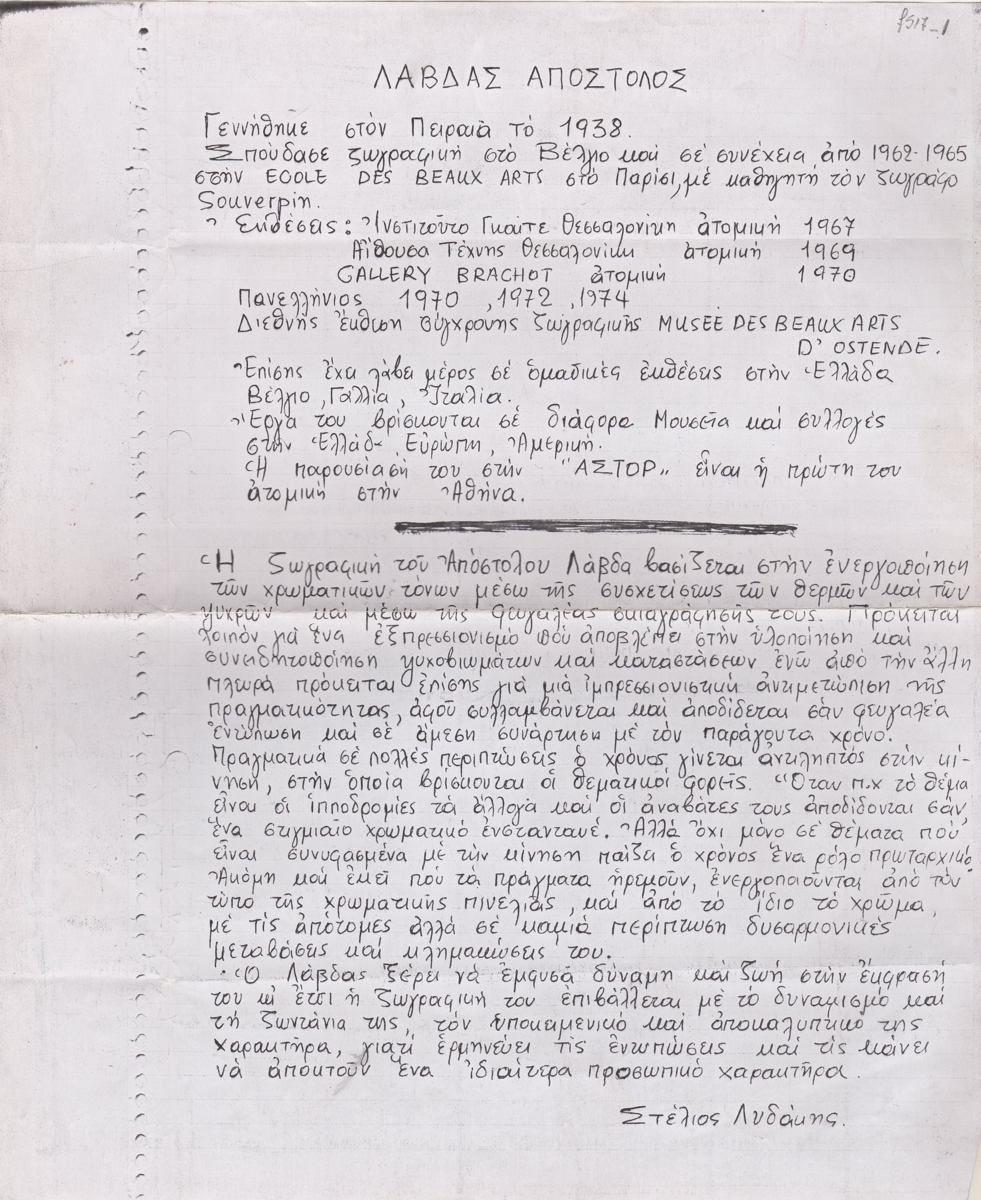 f517-1
ΛΑΒΔΑΣ ΑΠΟΣΤΟΛΟΣ
Γεννήθηκε στόν Πειραιά τό 1938.
Σπούδασε ζωγραφική στό Βέλγιο καί σέ συνέχεια ἀπό 1962-1965
στήν ECOLE DES BEAUX ARTS στό Παρίσι, μέ καθηγητή τόν ζωγράφο
Souverpin.
Ἐκθέσεις: Ἰνστιτοῦτο Γκαῖτε Θεσσαλονίκη ἀτομική 1967
Αἴθουσα Τέχνης Θεσσαλονίκη ἀτομική 1969
GALLERY BRACHOT ἀτομική 1970
Πανελλήνιος 1970 , 1972 , 1974
Διεθνής ἔκθεση σύγχρονης ζωγραφικῆς MUSEE DES BEAUX ARTS
D' OSTENDE.
Ἐπίσης ἔχει λάβει μέρος σέ ὁμαδικές ἐκθέσεις στήν Ἑλλάδα
Βέλγιο, Γαλλία, Ἰταλία.
Ἔργα του βρίσκονται σέ διάφορα Μουσεῖα καί συλλογές
στήν Ἑλλάδα, Εὐρώπη, Ἀμερική.
Ἡ παρουσίασή του στήν "ΑΣΤΟΡ" εἶναι ἡ πρώτη του
ἀτομική στήν Ἀθήνα.
Ἡ ζωγραφική τοῦ Ἀπόστολου Λάβδα βασίζεται στήν ἐνεργοποίηση
τῶν χρωματικῶν τόνων μέσω τῆς συσχετίσεως τῶν θερμῶν καί τῶν
ψυχρῶν καί μέσω τῆς φευγαλέας σκιαγράφησής τους. Πρόκειται
λοιπόν γιά ἕνα ἐξπρεσσιονισμό πού ἀποβλέπει στήν ὑλοποίηση καί
συνειδητοποίηση ψυχοβιωμάτων καί καταστάσεων ἐνῶ ἀπό τήν ἄλλη
πλευρά πρόκειται ἐπίσης γιά μιά ἰμπρεσσιονιστική ἀντιμετώπιση τῆς
πραγματικότητας, ἀφοῦ συλλαμβάνεται καί ἀποδίδεται σάν φευγαλέα
ἐντύπωση καί σέ ἄμεση συνάρτηση μέ τόν παράγοντα χρόνο.
Πραγματικά σέ πολλές περιπτώσεις ὁ χρόνος γίνεται ἀντιληπτός στήν κί-
νηση, στήν ὁποία βρίσκονται οἱ θεματικοί φορεῖς. Ὅταν π.χ τό θέμα
εἶναι οἱ ἱπποδρομίες τά ἄλογα καί οἱ ἀναβάτες τους ἀποδίδονται σάν
ἕνα στιγμιαῖο χρωματικό ἐνσταντανέ. Ἀλλά ὄχι μόνο σέ θέματα πού
εἶναι συνυφασμένα μέ τήν κίνηση παίζει ὁ χρόνος ἕνα ρόλο πρωταρχικό
Ἀκόμη καί ἐκεῖ πού τά πράγματα ἠρεμοῦν, ἐνεργοποιοῦνται ἀπό τόν
τύπο τῆς χρωματικῆς πινελιᾶς, καί ἀπό τό ἴδιο τό χρῶμα,
μέ τίς ἀπότομες ἀλλά σέ καμιά περίπτωση δυσαρμονικές
μεταβάσεις καί κλιμακώσεις του.
Ὁ Λάβδας ξέρει νά ἐμφυσᾶ δύναμη καί ζωή στήν ἔκφρασή
του κι ἔτσι ἡ ζωγραφική του ἐπιβάλλεται μέ τό δυναμισμό καί
τή ζωντάνια της, τόν ὑποκειμενικό καί ἀποκαλυπτικό της
χαρακτήρα, γιατί ἑρμηνεύει τίς ἐντυπώσεις καί τίς κάνει
νά ἀποκτοῦν ἕνα ἰδιαίτερα προσωπικό χαρακτήρα.
Στέλιος Λυδάκης.